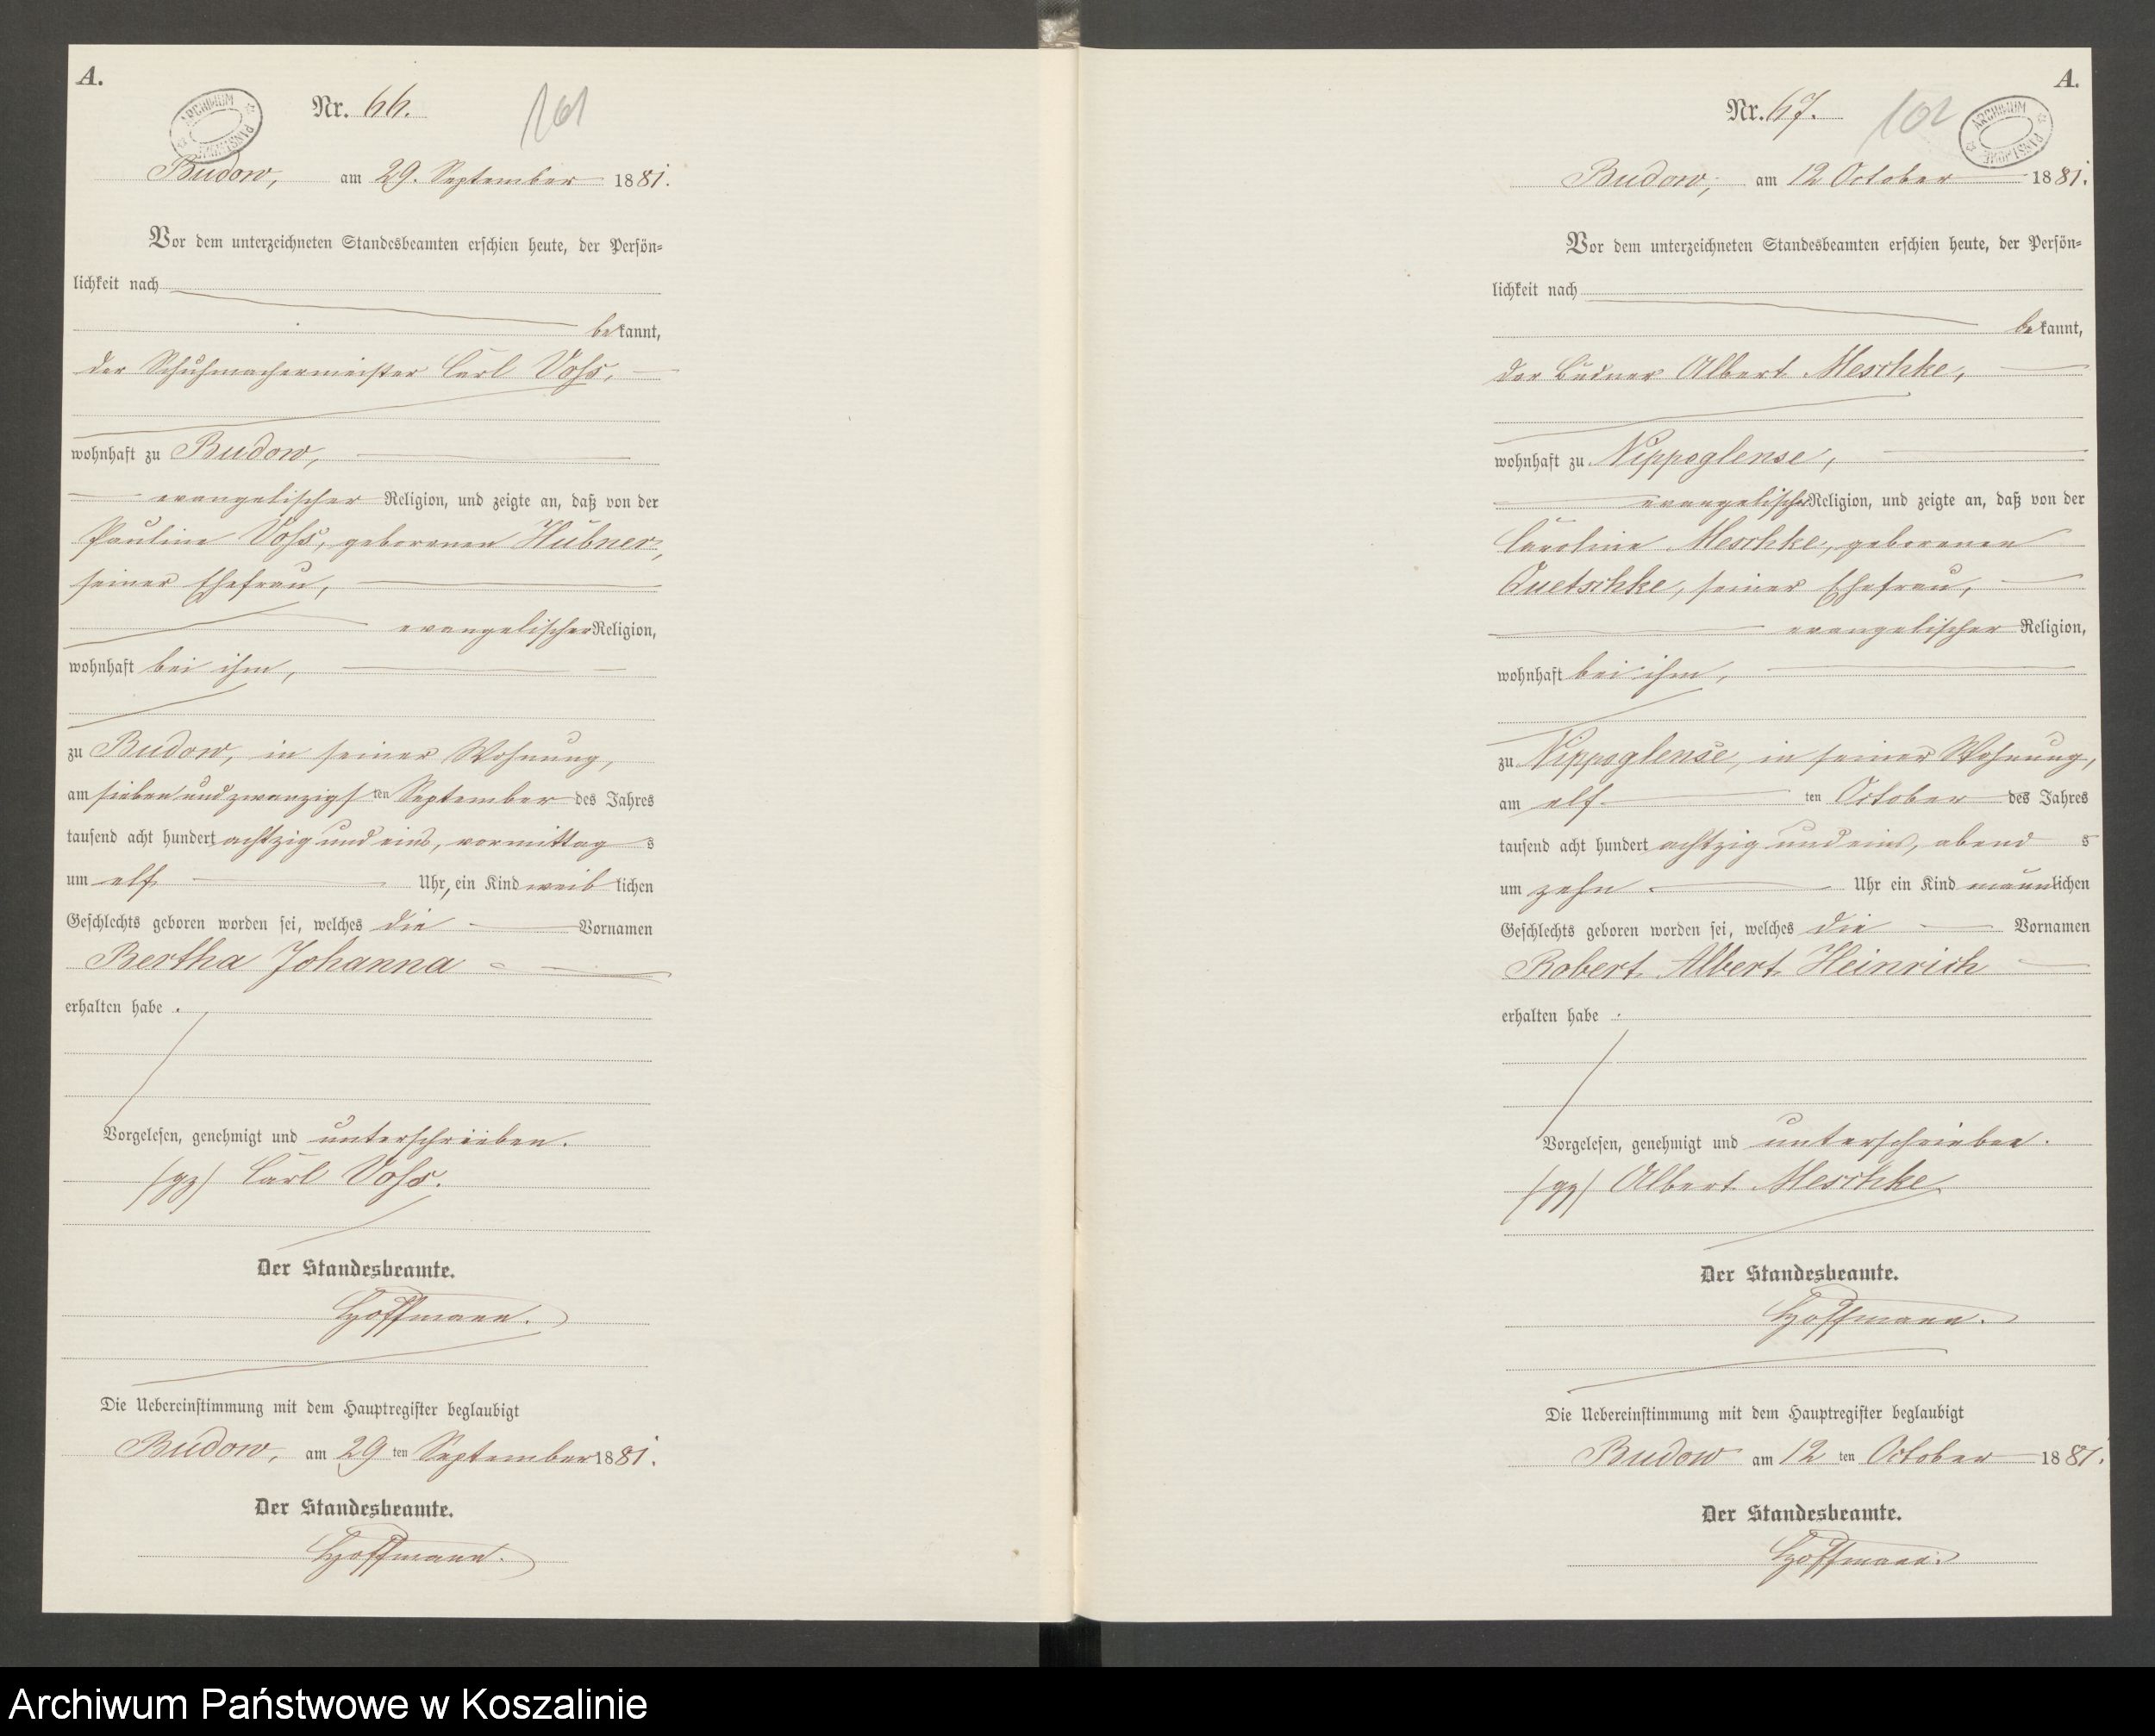 A.
ARCHIWUM PAŃSTWOWE
Nr. 66.
101
Budow, am 29. September 1881.
Vor dem unterzeichneten Standesbeamten erschien heute, der Persön-
lichkeit nach
bekannt,
der Schuhmachermeister Carl Vohs,
wohnhaft zu Budow,
evangelischer Religion, und zeigte an, daß von der
Pauline Vohs, geborenen Hübner,
seiner Ehefrau,
evangelischer Religion,
wohnhaft bei ihm,
zu Budow, in seiner Wohnung,
am sieben und zwanzigsten September des Jahres
tausend acht hundert achtzig und eins, vormittags
um elf Uhr, ein Kind weiblichen
Geschlechts geboren worden sei, welches die Vornamen
Bertha Johanna
erhalten habe.
Vorgelesen, genehmigt und unterschrieben.
(gz) Carl Vohs.
Der Standesbeamte.
Hoffmann.
Die Uebereinstimmung mit dem Hauptregister beglaubigt
Budow, am 29ten September 1881.
Der Standesbeamte.
Hoffmann.
A.
ARCHIWUM PAŃSTWOWE
Nr. 67.
102
Budow, am 12 October 1881.
Vor dem unterzeichneten Standesbeamten erschien heute, der Persön-
lichkeit nach
bekannt,
der Büdner Albert Meschke,
wohnhaft zu Nippoglense,
evangelischer Religion, und zeigte an, daß von der
Caroline Meschke, geborenen
Quetschke, seiner Ehefrau,
evangelischer Religion,
wohnhaft bei ihm,
zu Nippoglense, in seiner Wohnung,
am elften October des Jahres
tausend acht hundert achtzig und eins, abends
um zehn Uhr ein Kind männlichen
Geschlechts geboren worden sei, welches die Vornamen
Robert Albert Heinrich
erhalten habe.
Vorgelesen, genehmigt und unterschrieben.
(gz) Albert Meschke
Der Standesbeamte.
Hoffmann.
Die Uebereinstimmung mit dem Hauptregister beglaubigt
Budow am 12ten October 1881.
Der Standesbeamte.
Hoffmann.
Archiwum Państwowe w Koszalinie